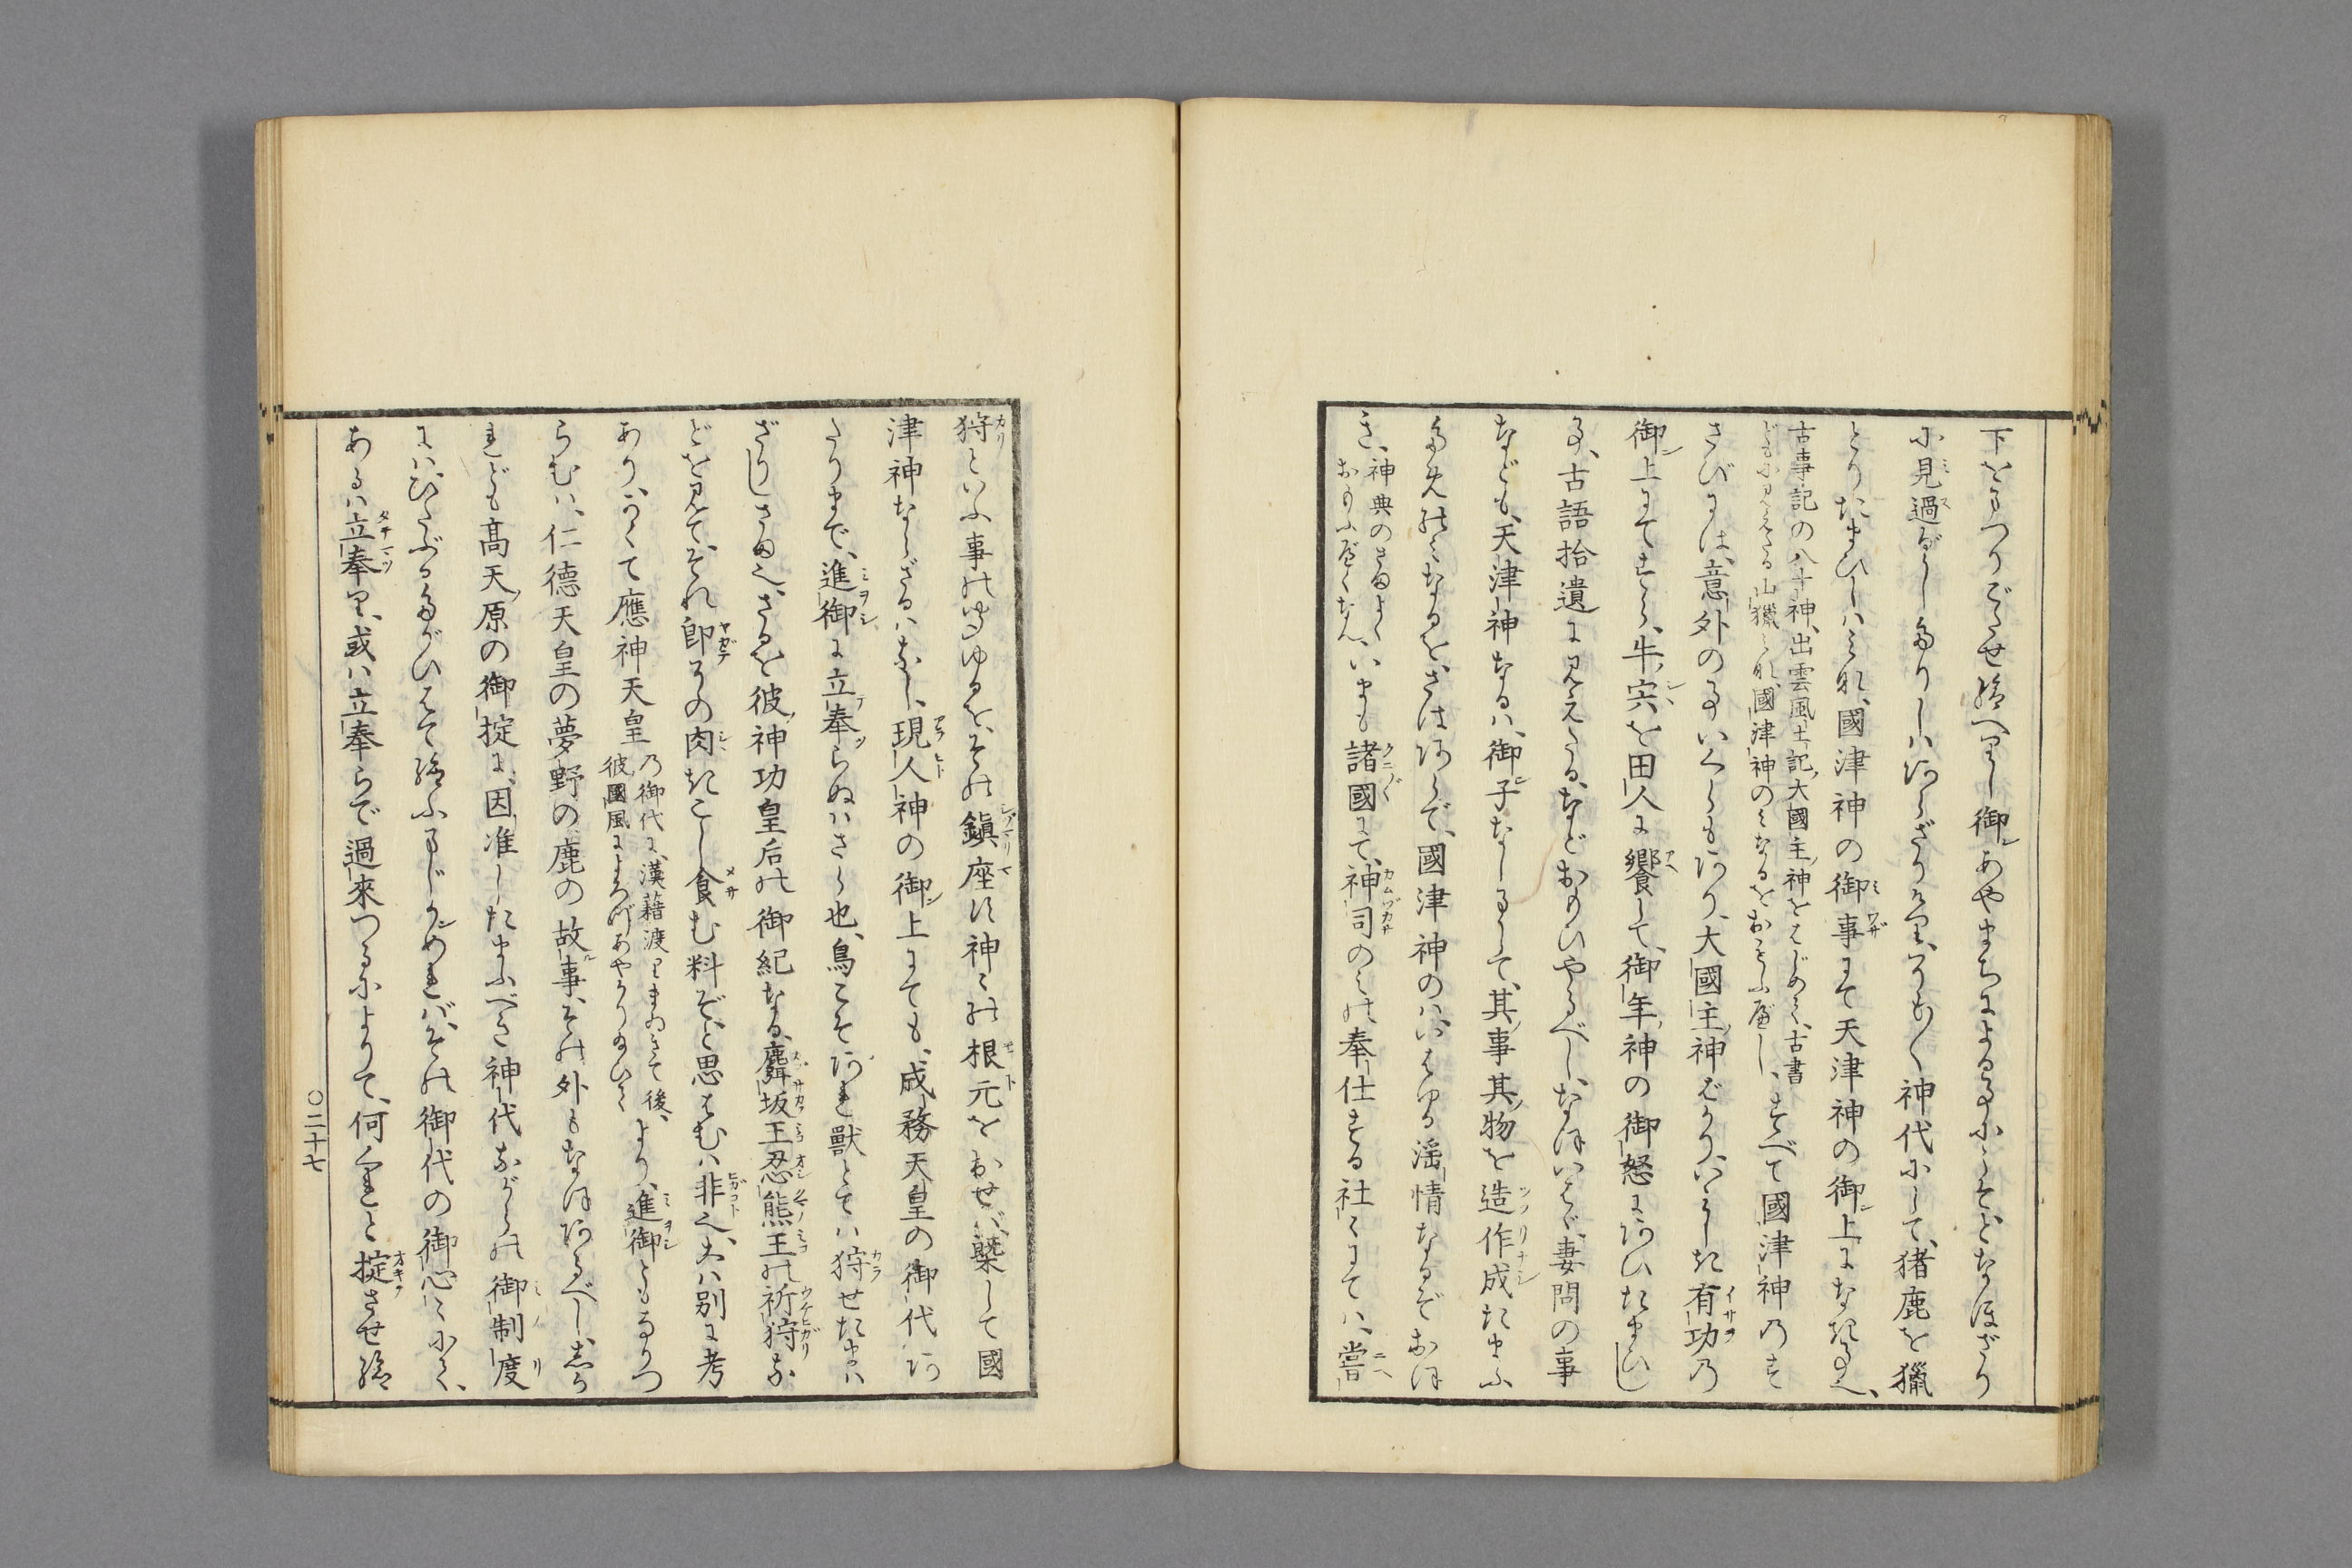 下をまつりごたせ給へりし御あやまちによる事にこそとなほざり
に見過ぐしたりしハあらざりけり、そも〳〵神代にして、猪鹿を獵
とりたまひしハみな、國津神の御事にて天津神の御上になき事也、
古事記の八十神、出雲風土記、大國主神をはじめて、古書
どもに見えたる山獵みな、國津神のみなるをおもふべし、すべて國津神のす
さびには、意外の事いくらもあり、大國主神ばかり、いみしき有功の
御上にてすら、牛宍を田人に饗して、御年神の御怒にあひたまひし
事、古語拾遺に見えたる、などおもひやるべし、なほいはゞ妻問の事
なども、天津神なるハ、御子なしまして、其事其物を造作成たまふ
ためのみなるを、さはあらで、國津神のハ、いはゆる淫情なるぞおほ
き、神典のさまよく
おもふべくなん、いまも諸國にて、神司のみの奉仕する社〻にてハ、嘗
狩といふ事のきこゆるを、その鎮座す神〻の根元をおせば、槩して國
津神ならざるハなし、現人神の御上にても、成務天皇の御代あ
たりまで、進御に立奉らぬハさら也、鳥こそあれ獸とてハ狩せたまハ
ざりしさま也、さるを彼神功皇后の御紀なる、麛坂王忍熊王の祈狩な
どを見て、それ即その肉きこし食む料ぞと思はむハ非也、夫ハ別に考
あり、かくて應神天皇
乃御代に、漢藉渡りまゐきて後、
彼國風によろづあやかり給ひてより、進御ともなりつ
らむハ、仁德天皇の夢野の鹿の故事、その外もなほあるべし、しか
れども髙天原の御掟に、因准したまふべき神代ながらの御制度
にハ、ひたぶるたがひはて給ふまじかめれば、その御代の御心〻にて、
あるハ立奉り、或ハ立奉らで過來つるによりて、何くれと掟させ給
〇二十七